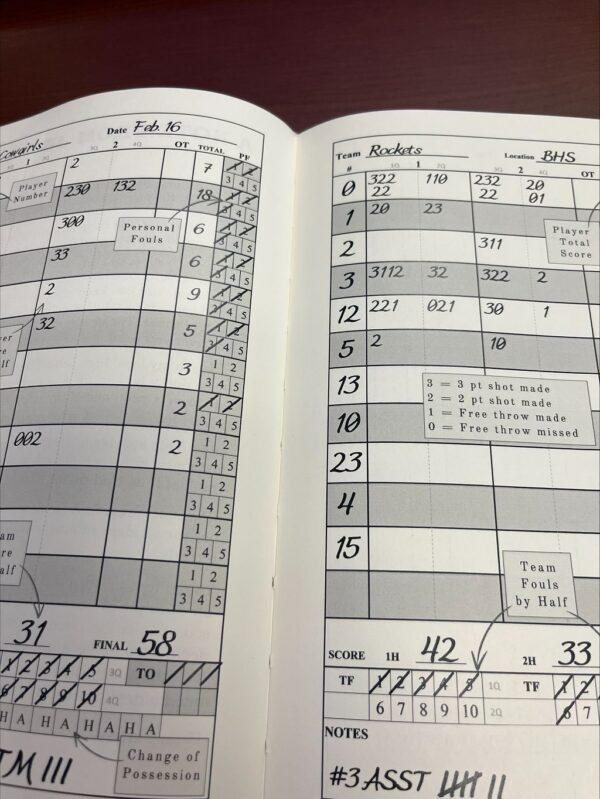 Cowgirls Date Feb. 16
1Q 1 2Q 3Q 2 4Q OT TOTAL PF
2 7 1 2
3 4 5
Player Number
230 132 18 1 2
3 4 5
Personal Fouls
300 6 1 2
3 4 5
33 6 1 2
3 4 5
2 9 1 2
3 4 5
32 5 1 2
3 4 5
3 1 2
3 4 5
2 1 2
3 4 5
002 2 1 2
3 4 5
1 2
3 4 5
1 2
3 4 5
1 2
3 4 5
31 FINAL 58
1 2 3 4 5 3Q TO
6 7 8 9 10 4Q
H A H A H A H A
Change of Possession
TM III
Team Rockets Location BHS
# 1Q 1 2Q 3Q 2 4Q OT
0 322 110 232 20
22 22 01
1 20 23
Player Total Score
2 311
3 3112 32 322 2
12 221 021 30 1
5 2 10
13
3 = 3 pt shot made
2 = 2 pt shot made
1 = Free throw made
0 = Free throw missed
10
23
4
15
Team Fouls by Half
SCORE 1H 42 2H 33
TF 1 2 3 4 5 1Q TF 1 2
6 7 8 9 10 2Q 6 7
NOTES
#3 ASST IIII II